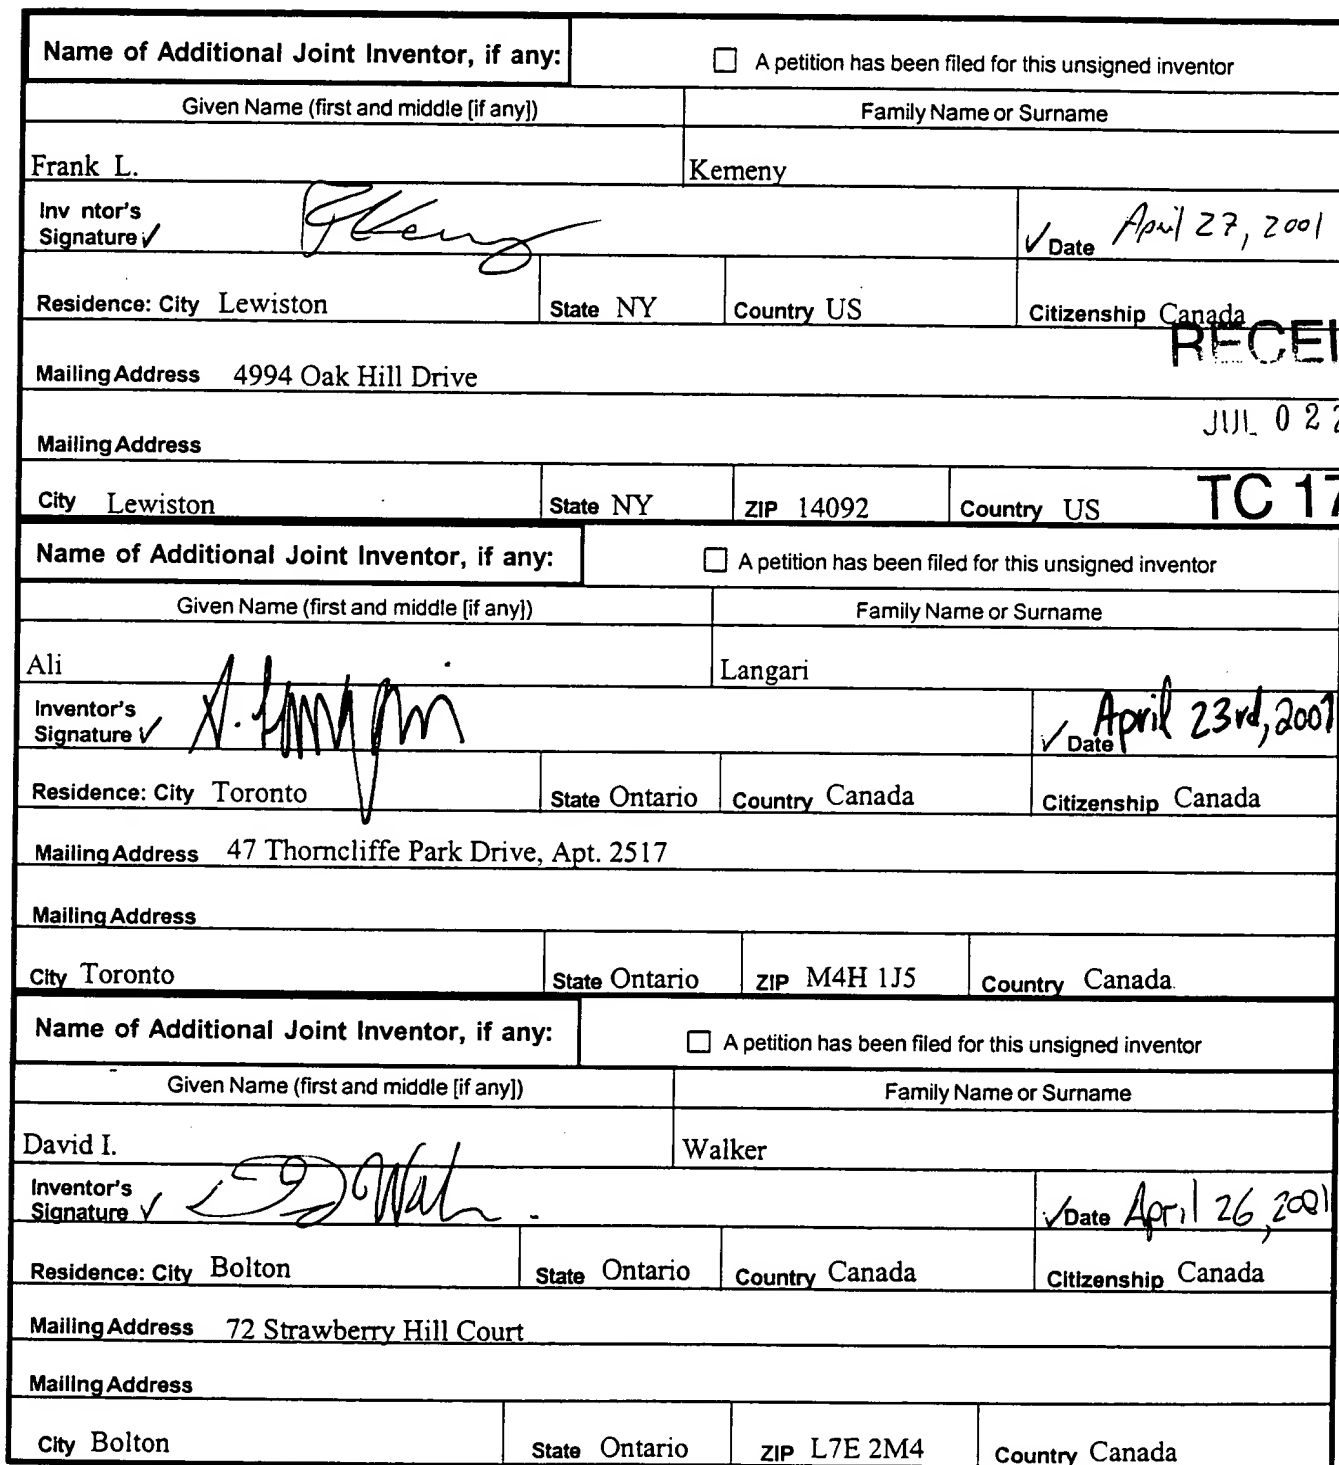 Name of Additional Joint Inventor, if any: ☐ A petition has been filed for this unsigned inventor
Given Name (first and middle [if any]) Family Name or Surname
Frank L. Kemeny
Inv ntor's
Signature ✓ ✓ Date April 27, 2001
Residence: City Lewiston State NY Country US Citizenship Canada
RECEI
Mailing Address 4994 Oak Hill Drive
JUL 02 2
Mailing Address
City Lewiston State NY ZIP 14092 Country US TC 17
Name of Additional Joint Inventor, if any: ☐ A petition has been filed for this unsigned inventor
Given Name (first and middle [if any]) Family Name or Surname
Ali Langari
Inventor's
Signature ✓ ✓ Date April 23rd, 2001
Residence: City Toronto State Ontario Country Canada Citizenship Canada
Mailing Address 47 Thorncliffe Park Drive, Apt. 2517
Mailing Address
City Toronto State Ontario ZIP M4H 1J5 Country Canada
Name of Additional Joint Inventor, if any: ☐ A petition has been filed for this unsigned inventor
Given Name (first and middle [if any]) Family Name or Surname
David I. Walker
Inventor's
Signature ✓ ✓ Date April 26, 2001
Residence: City Bolton State Ontario Country Canada Citizenship Canada
Mailing Address 72 Strawberry Hill Court
Mailing Address
City Bolton State Ontario ZIP L7E 2M4 Country Canada